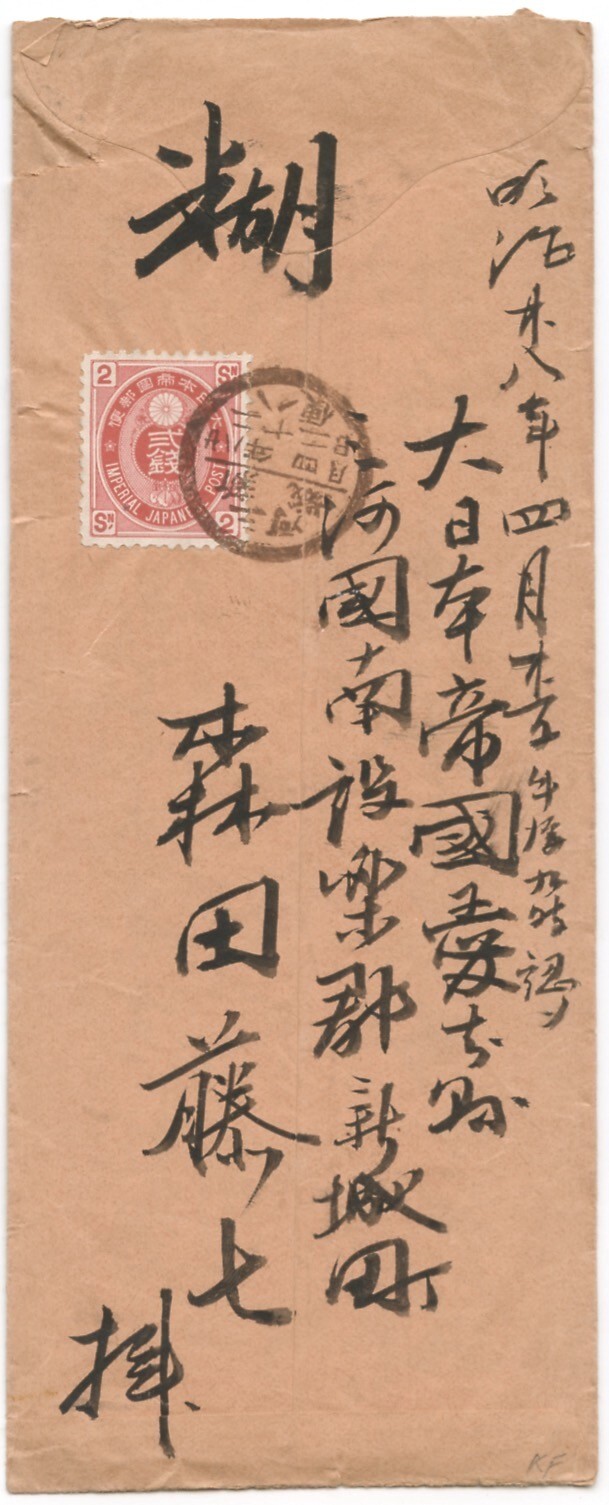 明治廿八年四月廿五 午後九時認ム
大日本帝國愛知縣
三河國南設楽郡新城町
森田藤七
拝
糊
大日本帝國郵便
貳錢
IMPERIAL JAPANESE POST
2 Sn
Sn 2
三河
新城
廿八年
四月
KF